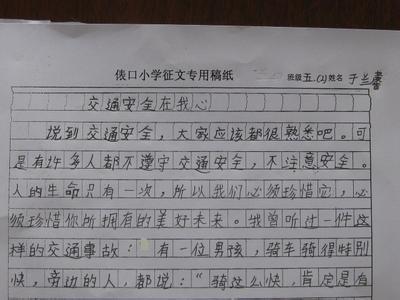 俵口小学征文专用稿纸 班级 五.(2) 姓名 于兰馨
交通安全在我心
说到交通安全，大家应该都很熟悉吧。可
是有许多人都不遵守交通安全，不注意安全。
人的生命只有一次，所以我们必须珍惜它，必
须珍惜你所拥有的美好未来。我曾听过一件这
样的交通事故：有一位男孩，骑车骑得特别
快，旁边的人，都说：“骑这么快，肯定是有